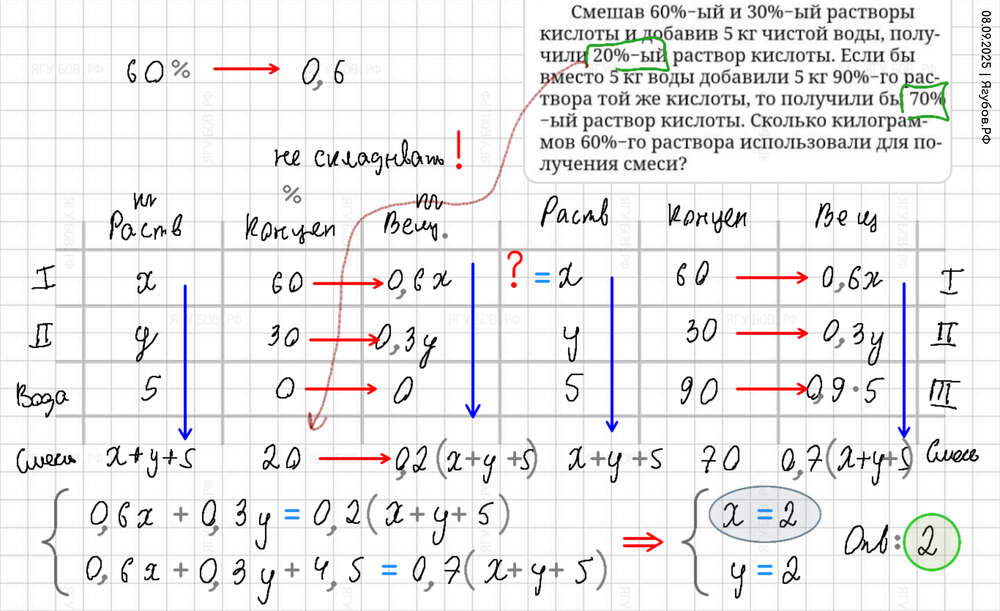 Смешав 60%-ый и 30%-ый растворы
кислоты и добавив 5 кг чистой воды, полу-
чили 20%-ый раствор кислоты. Если бы
вместо 5 кг воды добавили 5 кг 90%-го рас-
твора той же кислоты, то получили бы 70%
-ый раствор кислоты. Сколько килограм-
мов 60%-го раствора использовали для по-
лучения смеси?
08.09.2025 | Ягубов.РФ
60% → 0,6
не складывать!
m % m
Раств Концен Вещ. Раств Концен Вещ
I x 60 → 0,6x ? = x 60 → 0,6x I
II y 30 → 0,3y y 30 → 0,3y II
Вода 5 0 → 0 5 90 → 0,9·5 III
Смесь x+y+5 20 → 0,2(x+y+5) x+y+5 70 0,7(x+y+5) Смесь
0,6x + 0,3y = 0,2(x+y+5) ⇒ x = 2 Отв: 2
0,6x + 0,3y + 4,5 = 0,7(x+y+5) y = 2